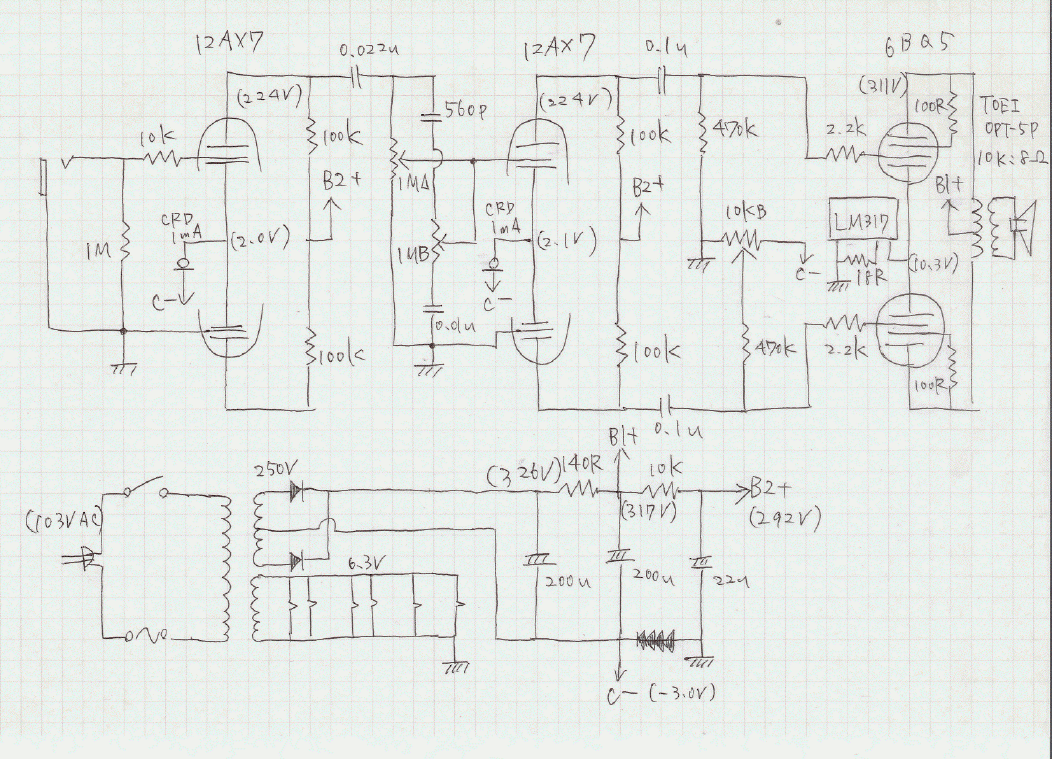 12AX7
0.022u
12AX7
0.1u
6BQ5
(224V)
(224V)
(311V)
560p
100R
TOEI
OPT-5P
10K:8Ω
10K
100K
100K
470K
2.2K
1MA
B2+
B2+
B1+
CRD
1mA
CRD
1mA
10KB
LM317
1M
(2.0V)
1MB
(2.1V)
C-
(10.3V)
18R
C-
C-
0.01u
100K
100K
470K
2.2K
100R
0.1u
B1+
250V
(326V)
140R
10K
B2+
(103VAC)
(317V)
(292V)
6.3V
200u
200u
22u
C- (-3.0V)